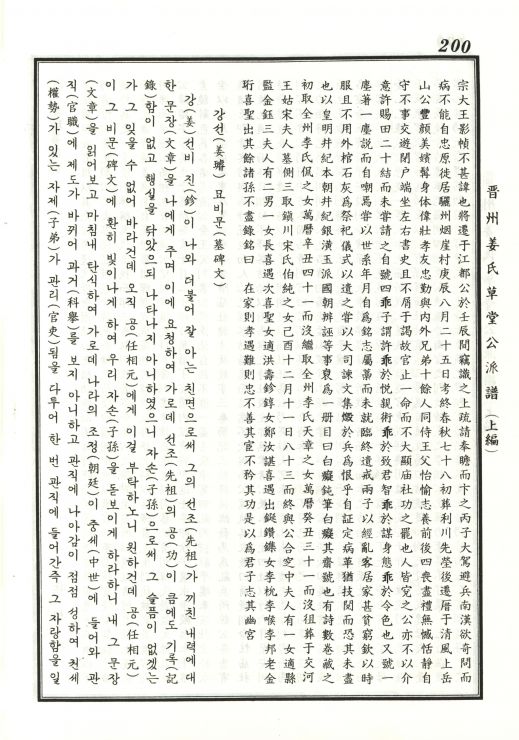 200
晋州姜氏草堂公派譜(上編)
宗大王影幀不甚諱也將遷于江都公於壬辰間竊識之上疏請奉瞻而卞之丙子大駕避兵南漢欲奇問而
病不能自忠原徙居驪州烟崖村庚辰八月二十五日考終春秋七十八初葬利川先塋後遷厝于清風上岳
山公豐顔美鬚髯身体偉壯孝友忠勤與內外兄弟十餘人同侍王父怡愉志養前後四喪盡禮無憾恬靜自
守不事交遊閉户端坐左右書史且不屑于謁故官止一命而不大顯庙社功之罷也人皆冤之公亦不以介
意許賜田二十結而未嘗請之自號四乖子謂許乖於悦親術乖於致君智乖於謀身態乖於令色也又號一
塵著一塵説而自嘲焉嘗以世系年月自為銘志屬藁而未就臨終遺戒兩子以經亂客居家甚貧窮斂以時
服且不用外棺石灰為祭祀儀式以遺之嘗以大司諫文集燬於兵為恨乎自証定病革猶技閱而恐其未盡
也以皇明幷紀本朝幷紀銀潢玉派國朝辨誣等事裒為一册目曰白癡鈍筆白癡其齋號也有詩數卷藏之
初取全州李氏侃之女萬曆辛丑四十一而沒繼取全州李氏天章之女萬曆癸丑三十一而沒祖葬于交河
王姑宋夫人墓側三取鎮川宋氏伯純之女己酉十二月十一日八十三而終與公合窆中夫人有一女適縣
監金鈺三夫人有二男一女長喜遇次喜聖女適洪壽鉁錞女鄭汝諶喜遇出錟鑽鏶女李枕李喉李邦老金
珩喜聖出其餘諸孫不盡錄銘曰 在家則孝遇難則忠不善其官不矜其功是以為君子志其幽宮
강선(姜璿) 묘비문(墓碑文)
강(姜)선비 진(鉁)이 나와 더불어 잘 아는 친면으로써 그의 선조(先祖)가 끼친 내력에 대
한 문장(文章)을 나에게 주며 이에 요청하여 가로데 선조(先祖)의 공(功)이 큼에도 기록(記
錄)함이 없고 행실을 닦았으되 나타나지 아니하였으니 자손(子孫)으로써 그 슬픔이 없겠는
가 그 잊을 수 없어 바라건데 오직 공(任相元)에게 이걸 부탁하노니 원하건데 공(任相元)
이 그 비문(碑文)에 환히 빛이나게 하여 우리 자손(子孫)을 돋보이게 하라하니 내 그 문장
(文章)을 읽어보고 마침내 탄식하여 가로데 나라의 조정(朝廷)이 중세(中世)에 들어와 관
직(官職)에 제도가 바뀌어 과거(科擧)를 보지 아니하고 관직에 나아감이 점점 성하여 권세
(權勢)가 있는 자제(子弟)가 관리(官吏)됨을 다투어 한 번 관직에 들어간즉 그 자랑함을 일